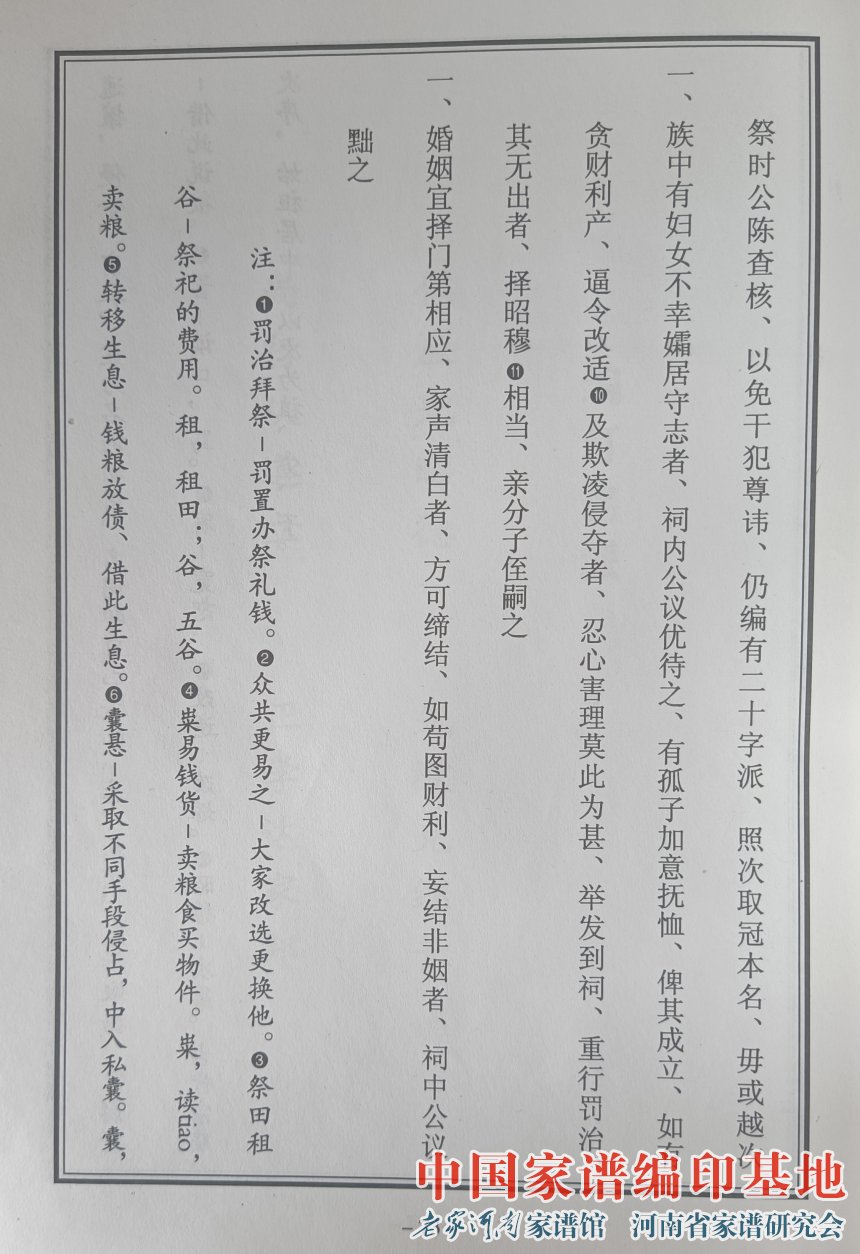 祭时公陈查核、以免干犯尊讳、仍编有二十字派、照次取冠本名、毋或越次
一、族中有妇女不幸孀居守志者、祠内公议优待之、有孤子加意抚恤、俾其成立、如有
贪财利产、逼令改适❿及欺凌侵夺者、忍心害理莫此为甚、举发到祠、重行罚治
其无出者、择昭穆⓫相当、亲分子侄嗣之
一、婚姻宜择门第相应、家声清白者、方可缔结、如苟图财利、妄结非姻者、祠中公议
黜之
注：❶罚治拜祭－罚置办祭礼钱。❷众共更易之－大家改选更换他。❸祭田租
谷－祭祀的费用。租，租田；谷，五谷。❹粜易钱货－卖粮食买物件。粜，读tiao，
卖粮。❺转移生息－钱粮放债、借此生息。❻囊悬－采取不同手段侵占，中入私囊。囊，
中国家谱编印基地
老家河南家谱馆 河南省家谱研究会